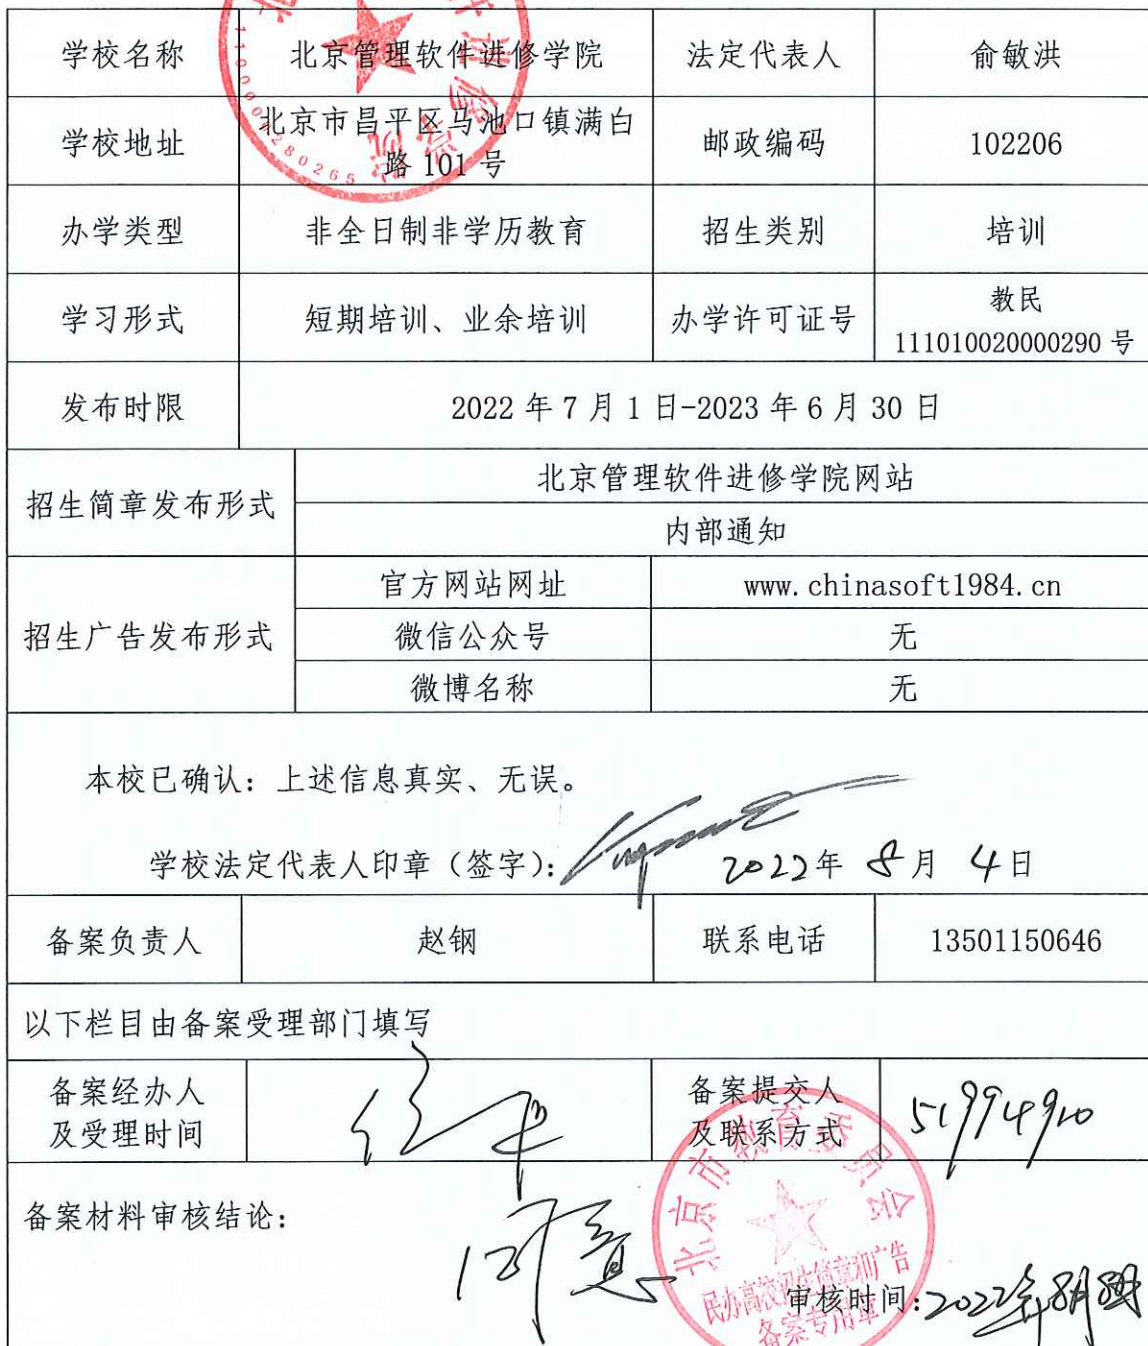 学校名称 北京管理软件进修学院 法定代表人 俞敏洪
学校地址 北京市昌平区马池口镇满白
路 101 号 邮政编码 102206
办学类型 非全日制非学历教育 招生类别 培训
学习形式 短期培训、业余培训 办学许可证号 教民
111010020000290 号
发布时限 2022 年 7 月 1 日-2023 年 6 月 30 日
招生简章发布形式 北京管理软件进修学院网站
内部通知
招生广告发布形式 官方网站网址 www.chinasoft1984.cn
微信公众号 无
微博名称 无
本校已确认：上述信息真实、无误。
学校法定代表人印章（签字）： 2022年 8月 4日
备案负责人 赵钢 联系电话 13501150646
以下栏目由备案受理部门填写
备案经办人
及受理时间
备案提交人
及联系方式 51994910
备案材料审核结论： 同意
审核时间:2022年8月
北京市教育委员会
民办高校招生简章和广告
备案专用章
1100000280265